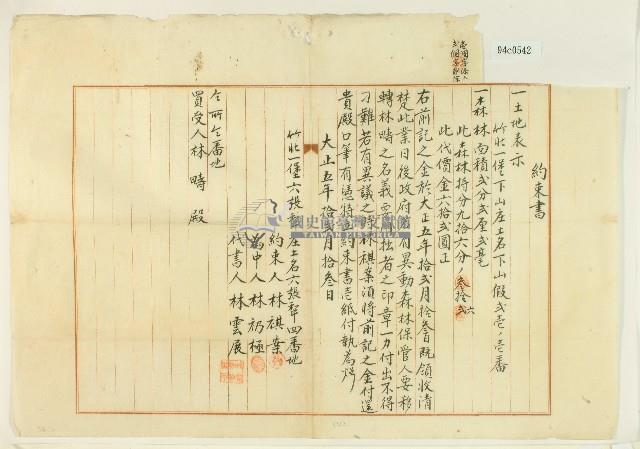 94c0542
約束書
一土地表示
竹北一堡下山庄土名下山假貳壱ノ壱番
一森林面積貳分貳厘貳毫
此森林持分九拾六分ノ叁拾貳
此代價金六拾貳圓正
右前記之金於大正五年拾貳月拾叁日既領收清
楚此業日後政府若有異動森林保管人要移
轉林疇之名義要
拙者之印章一力付出不得
刁難若有異議之時林祺業須將前記之金付還
貴殿口筆有憑特立約束書壱紙付執為炤
大正五年拾貳月拾叁日
竹北一堡六張犂庄土名六張犂四番地
約束人 林祺業
為中人 林礽極
代書人 林雲展
仝所仝番地
買受人 林疇 殿
國史館臺灣文獻館
TAIWAN HISTORICA